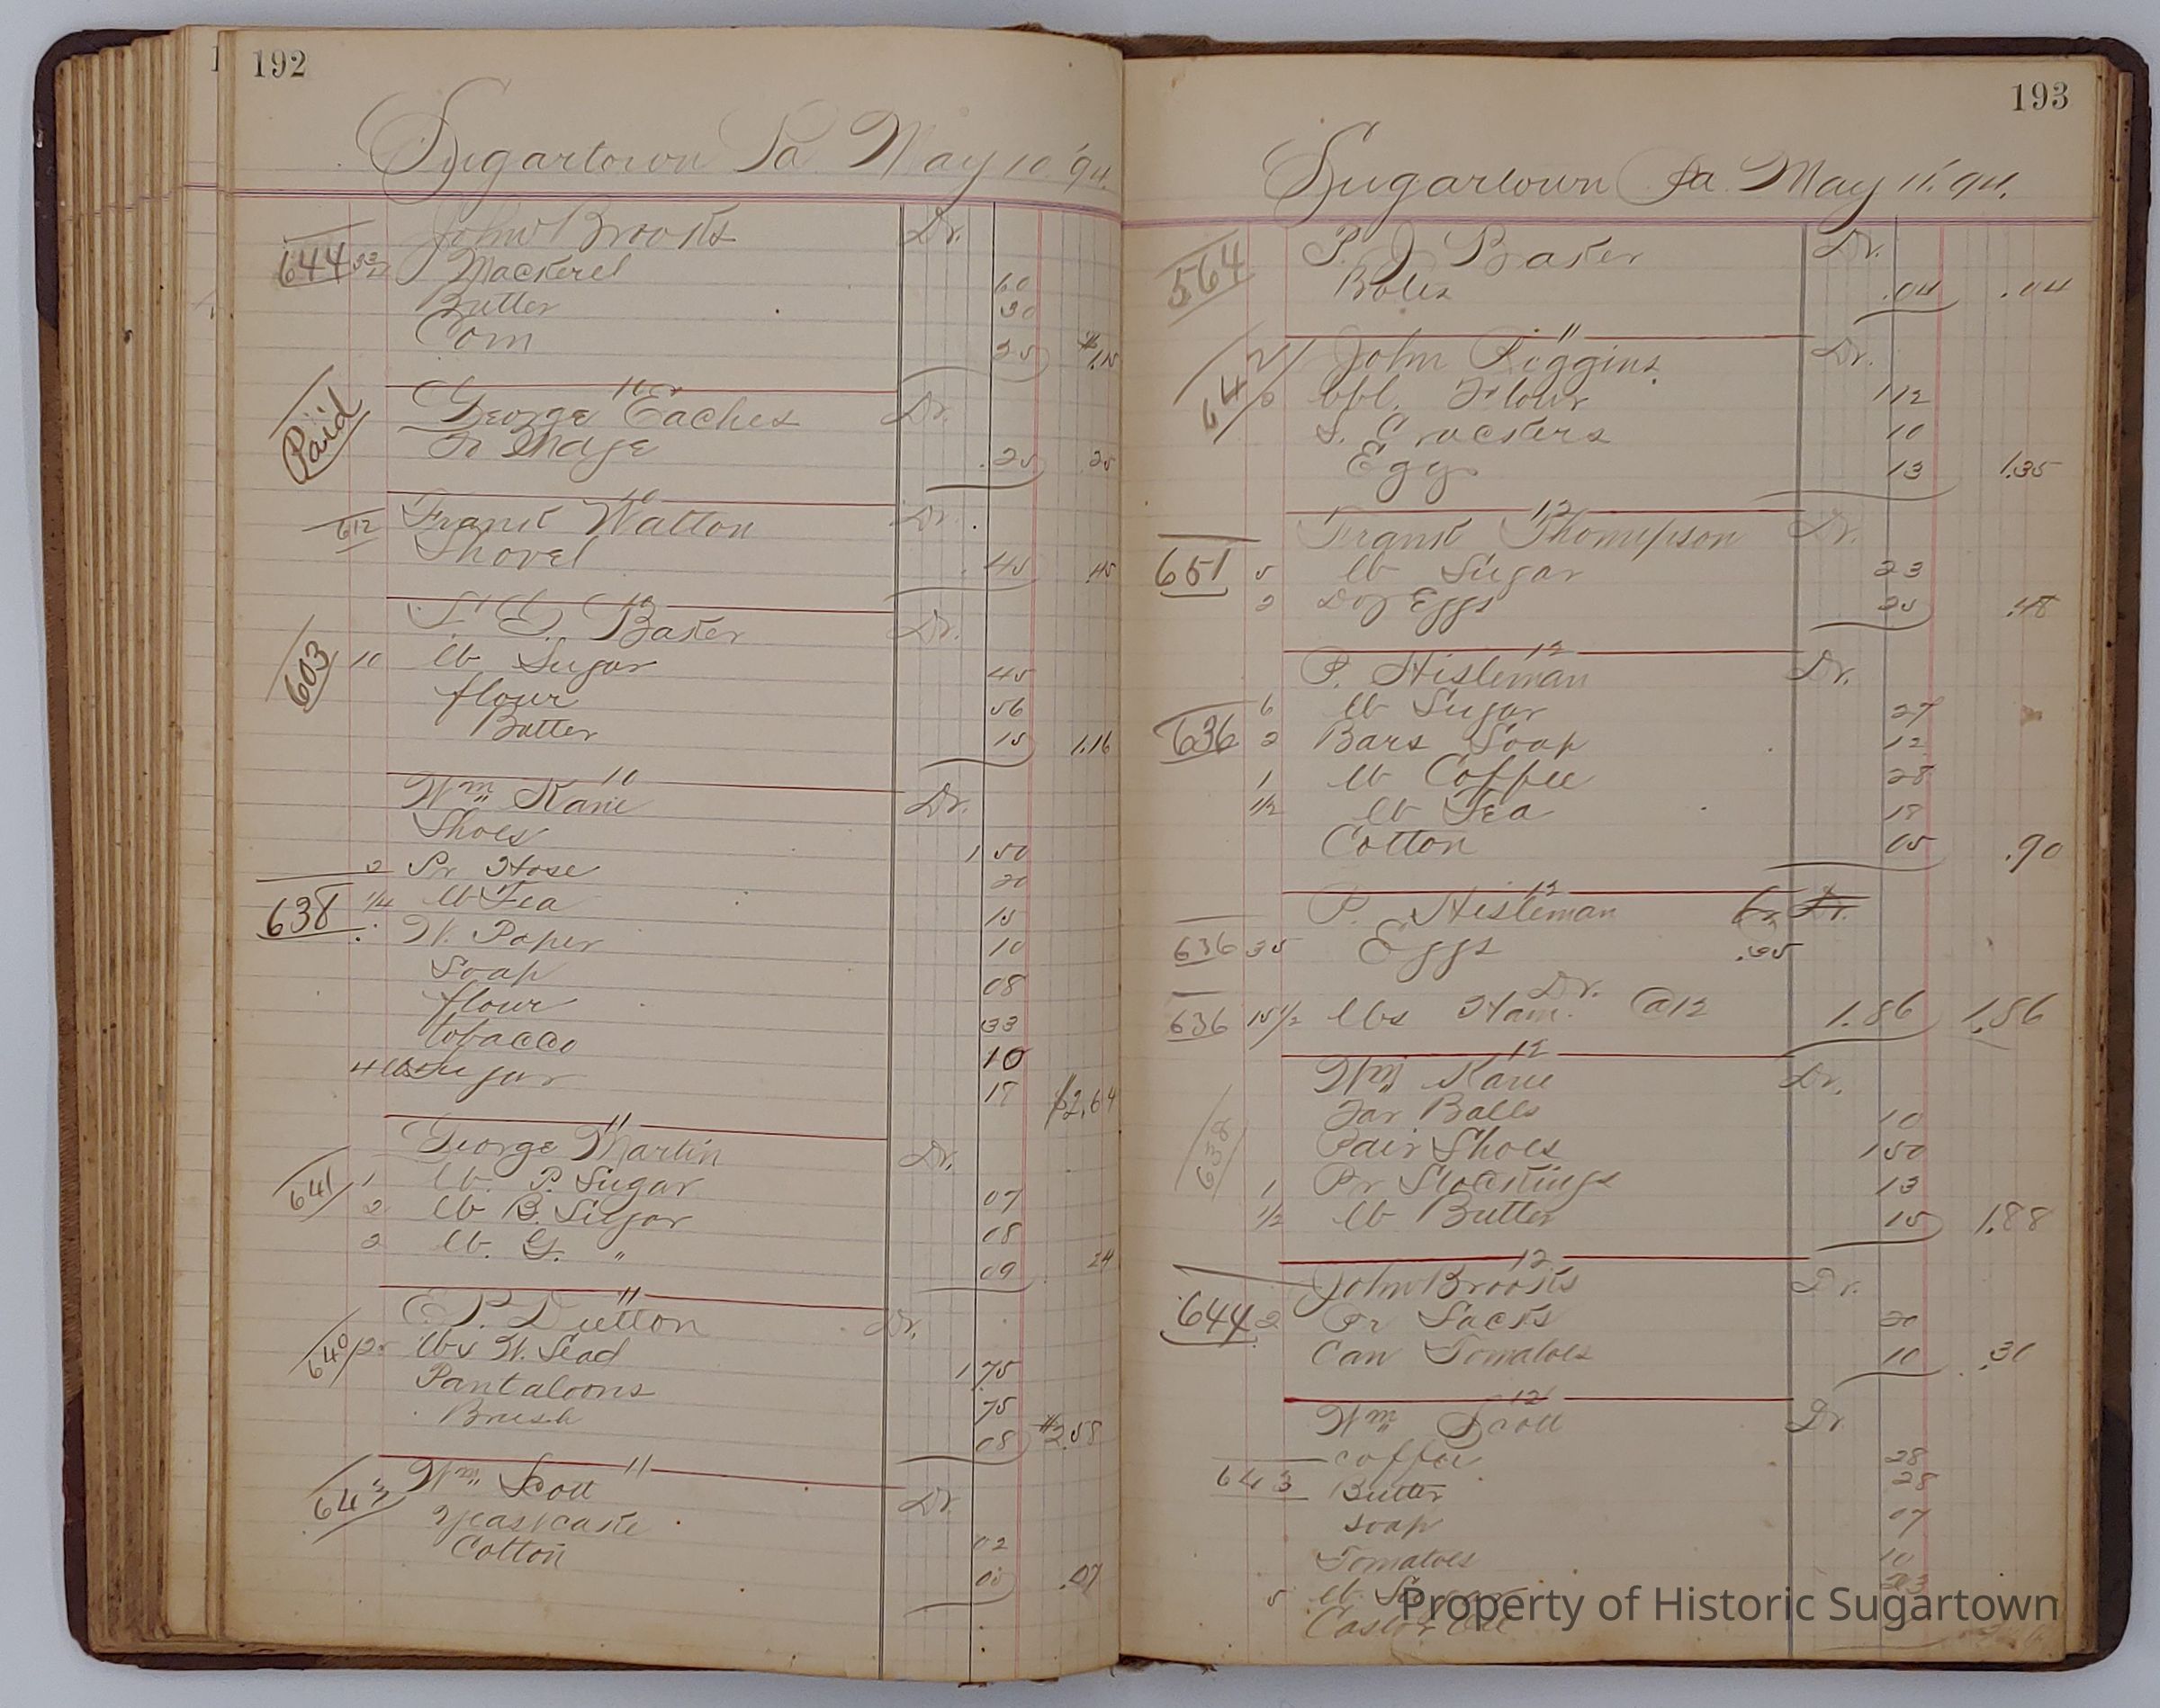 192
Sugartown Pa May 10 '94.
John Brooks Dr.
644 Mackerel 60
Butter 30
Corn 25 $1.15
10
George Eaches Dr.
Paid 25 25
10
612 Frank Walton Dr.
Shovel .45 .45
10
Baker Dr.
603 10 lb Sugar 45
flour 56
Butter 15 1.16
10
Wm Kane Dr.
Shoes 1 50
2 Pr Hose 20
638 1/4 lb Tea 15
W. Paper 10
Soap 08
flour 33
tobacco 10
4 lb Sugar 18 $2.64
11
George Martin Dr.
641 1 lb. P. Sugar 07
2 lb B. Sugar 08
2 lb. G. " 09 24
11
E. P. Dutton Dr.
640 25 lbs W. Lead 1 75
Pantaloons 75
Brush 08 $2.58
11
643 Wm Scott Dr.
Yeastcake 02
Cotton 05 .07
193
Sugartown Pa. May 11, 94.
564 P. J. Baker Dr.
.04 .04
11
642 John Riggins Dr.
bbl. Flour 1 12
S. Crackers 10
Eggs 13 1.35
12
Frank Thompson Dr.
651 5 lb Sugar 23
2 Doz Eggs 25 .48
12
P. Hisleman Dr.
6 lb Sugar 27
636 2 Bars Soap 12
1 lb Coffee 28
1/2 lb Tea 18
Cotton 05 .90
12
P. Hisleman Cr Dr.
636 35 Eggs .35
Dr.
636 15 1/2 lbs Ham. @12 1.86 1.86
12
Wm Kane Dr.
Tar Balls 10
638 Pair Shoes 1 50
1 Pr Stockings 13
1/2 lb Butter 15 1.88
12
John Brooks Dr.
644 2 Pr Socks 20
Can Tomatoes 10 .30
12
Wm Scott Dr
coffee 28
643 Butter 28
Soap 07
Tomatoes 10
5 lb Sugar 23
Castor Oil
Property of Historic Sugartown